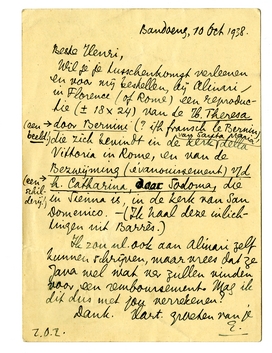 Bandoeng, 10 Oct 1938.
Beste Henri,
Wil je je tusschenkomst verleenen
en voor mij bestellen, bij Alinari
in Florence (of Rome) een reproduc-
tie (± 18 x 24) van de H. Theresa
(een beeld) door Bernini (? in 't fransch le Bernin)
die zich bevindt in de kerk van Santa Maria della
Vittoria in Rome, en van de
Bezwijming (évanouissement) v/d
(een schilderij) H. Catharina door Sodoma, die
in Sienna is, in de kerk van San
Domenico. – (Ik haal deze inlich-
tingen uit Barrès.)
Ik zou nl. ook aan Alinari zelf
kunnen schrijven, maar vrees dat ze
Java wel wat ver zullen vinden
voor een remboursement. Mag ik
dit dus met jou verrekenen?
Dank. Hart. groeten van je
E.
z.o.z.